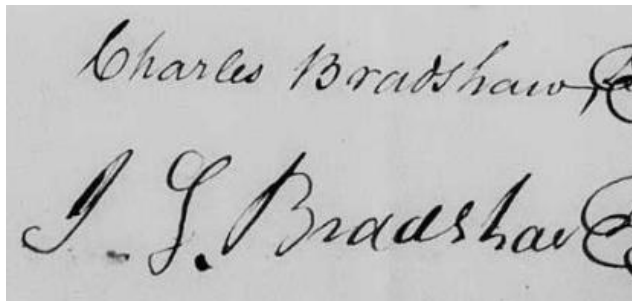 Charles Bradshaw
J. S. Bradshaw